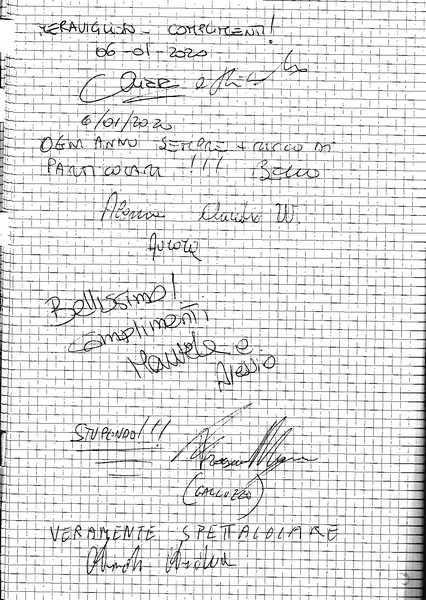 MERAVIGLIOSO - COMPLIMENTI!
06-01-2020
6/01/2020
OGNI ANNO SEMPRE + RICCO DI
PARTICOLARI !!! BELLO
Aurora
Bellissimo!
Complimenti
Manuela e
Alessio
STUPENDO!!!
(GALLUZZO)
VERAMENTE SPETTACOLARE